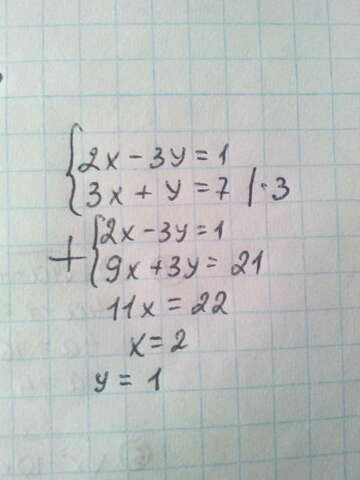 {2x - 3y = 1
3x + y = 7 | · 3
+ {2x - 3y = 1
9x + 3y = 21
11x = 22
x = 2
y = 1